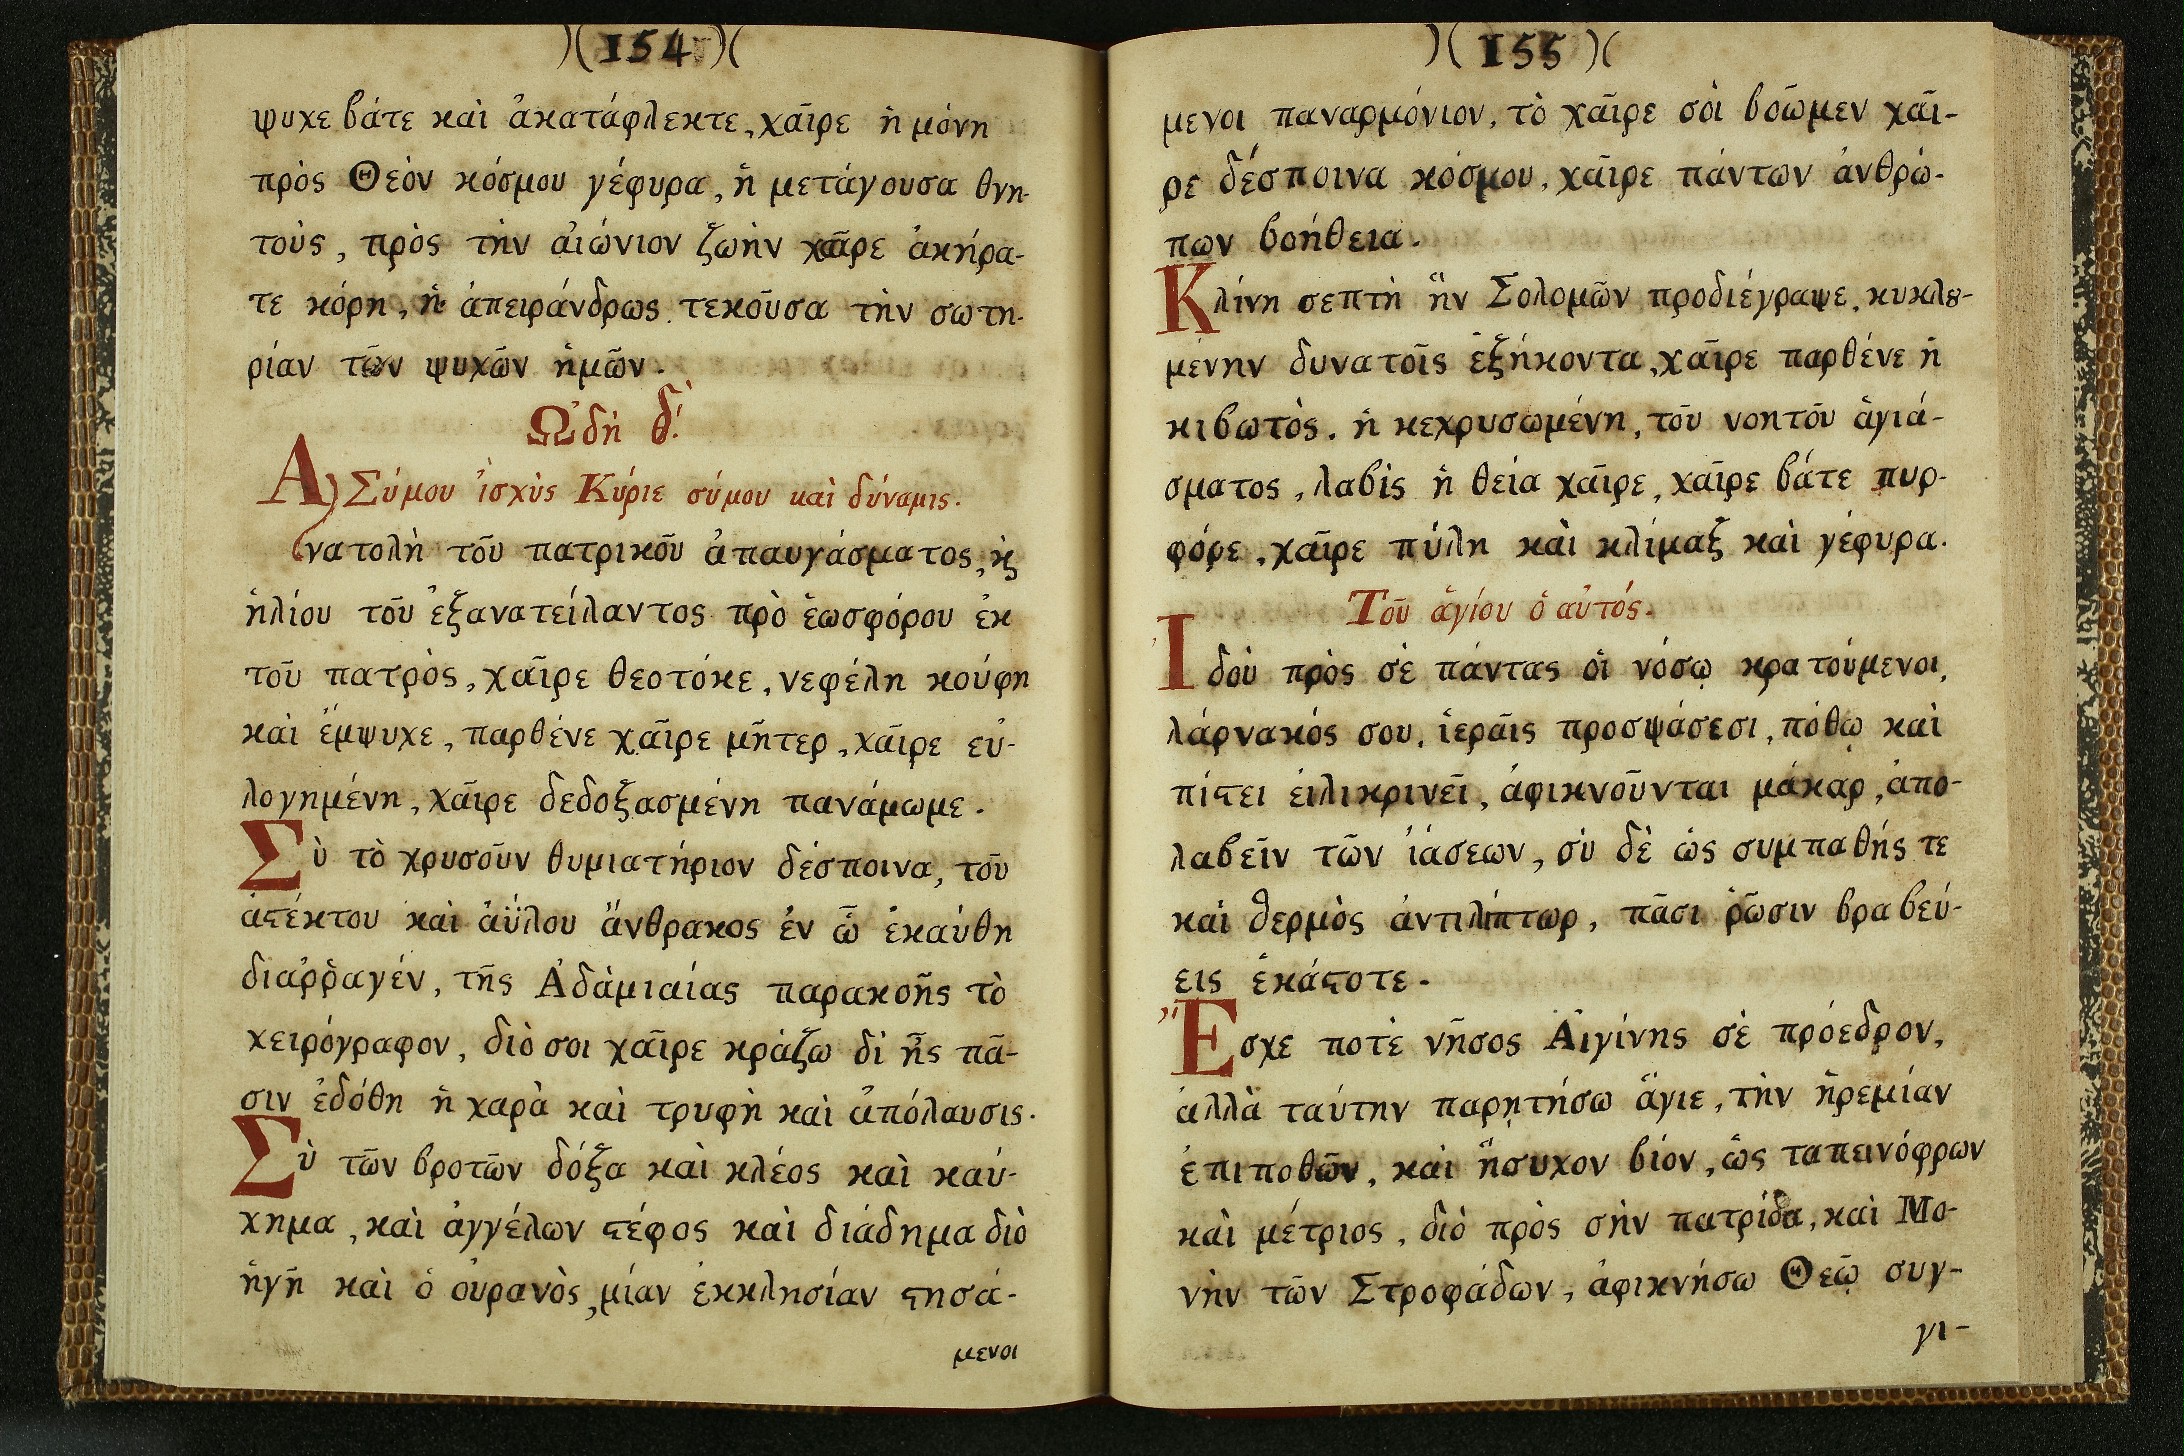 )( 154 )(
ψυχε βάτε καὶ ἀκατάφλεκτε, χαῖρε ἡ μόνη
πρὸς Θεὸν κόσμου γέφυρα, ἣ μετάγουσα θνη-
τοὺς, πρὸς τὴν αἰώνιον ζωὴν χαῖρε ἀκήρα-
τε κόρη, ἡ ἀπειράνδρως τεκοῦσα τὴν σωτη-
ρίαν τῶν ψυχῶν ἡμῶν.
Ὠδὴ δ'.
Α) Σύμου ἰσχὺς Κύριε σύμου καὶ δύναμις.
νατολὴ τοῦ πατρικοῦ ἀπαυγάσματος, ϗ
ἡλίου τοῦ ἐξανατείλαντος πρὸ ἑωσφόρου ἐκ
τοῦ πατρὸς, χαῖρε θεοτόκε, νεφέλη κούφη
καὶ ἔμψυχε, παρθένε χαῖρε μῆτερ, χαῖρε εὐ-
λογημένη, χαῖρε δεδοξασμένη πανάμωμε.
Σὺ τὸ χρυσοῦν θυμιατήριον δέσποινα, τοῦ
ἀϛέκτου καὶ ἀΰλου ἄνθρακος ἐν ᾧ ἐκαύθη
διαῤῥαγέν, τῆς Ἀδὰμιαίας παρακοῆς τὸ
χειρόγραφον, διὸ σοι χαῖρε κράζω δἰ ἧς πᾶ-
σιν ἐδόθη ἡ χαρὰ καὶ τρυφὴ καὶ ἀπόλαυσις.
Σὺ τῶν βροτῶν δόξα καὶ κλέος καὶ καύ-
χημα, καὶ ἀγγέλων ϛέφος καὶ διάδημα διὸ
ἡγῆ καὶ ὁ οὐρανὸς, μίαν ἐκκλησίαν ϛησά-
μενοι
)( 155 )(
μενοι παναρμόνιον, τὸ χαῖρε σοὶ βοῶμεν χαῖ-
ρε δέσποινα κόσμου, χαῖρε πάντων ἀνθρώ-
πων βοήθεια.
Κλίνη σεπτὴ ἣν Σολομῶν προδιέγραψε, κυκλȣ-
μένην δυνατοῖς ἑξήκοντα, χαῖρε παρθένε ἡ
κιβωτὸς, ἡ κεχρυσωμένη, τοῦ νοητοῦ ἁγιά-
σματος, λαβὶς ἡ θεία χαῖρε, χαῖρε βάτε πυρ-
φόρε, χαῖρε πύλη καὶ κλίμαξ καὶ γέφυρα.
Τοῦ ἁγίου ὁ αὐτός.
Ἰδοὺ πρὸς σὲ πάντας οἱ νόσῳ κρατούμενοι,
λάρνακός σου, ἱεραῖς προσψάσεσι, πόθῳ καὶ
πίϛει εἰλικρινεῖ, ἀφικνοῦνται μάκαρ, ἀπο-
λαβεῖν τῶν ἰάσεων, σὺ δὲ ὡς συμπαθής τε
καὶ θερμὸς ἀντιλήπτωρ, πᾶσι ῥῶσιν βραβεύ-
εις ἑκάϛοτε.
Ἔσχε ποτὲ νῆσος Αἰγίνης σὲ πρόεδρον,
ἀλλὰ ταύτην παρῃτήσω ἅγιε, τὴν ἠρεμίαν
ἐπιποθῶν, καὶ ἥσυχον βίον, ὡς ταπεινόφρων
καὶ μέτριος, διὸ πρὸς σὴν πατρίδα, καὶ Μο-
νὴν τῶν Στροφάδων, ἀφικνήσω Θεῷ συγ-
γι-